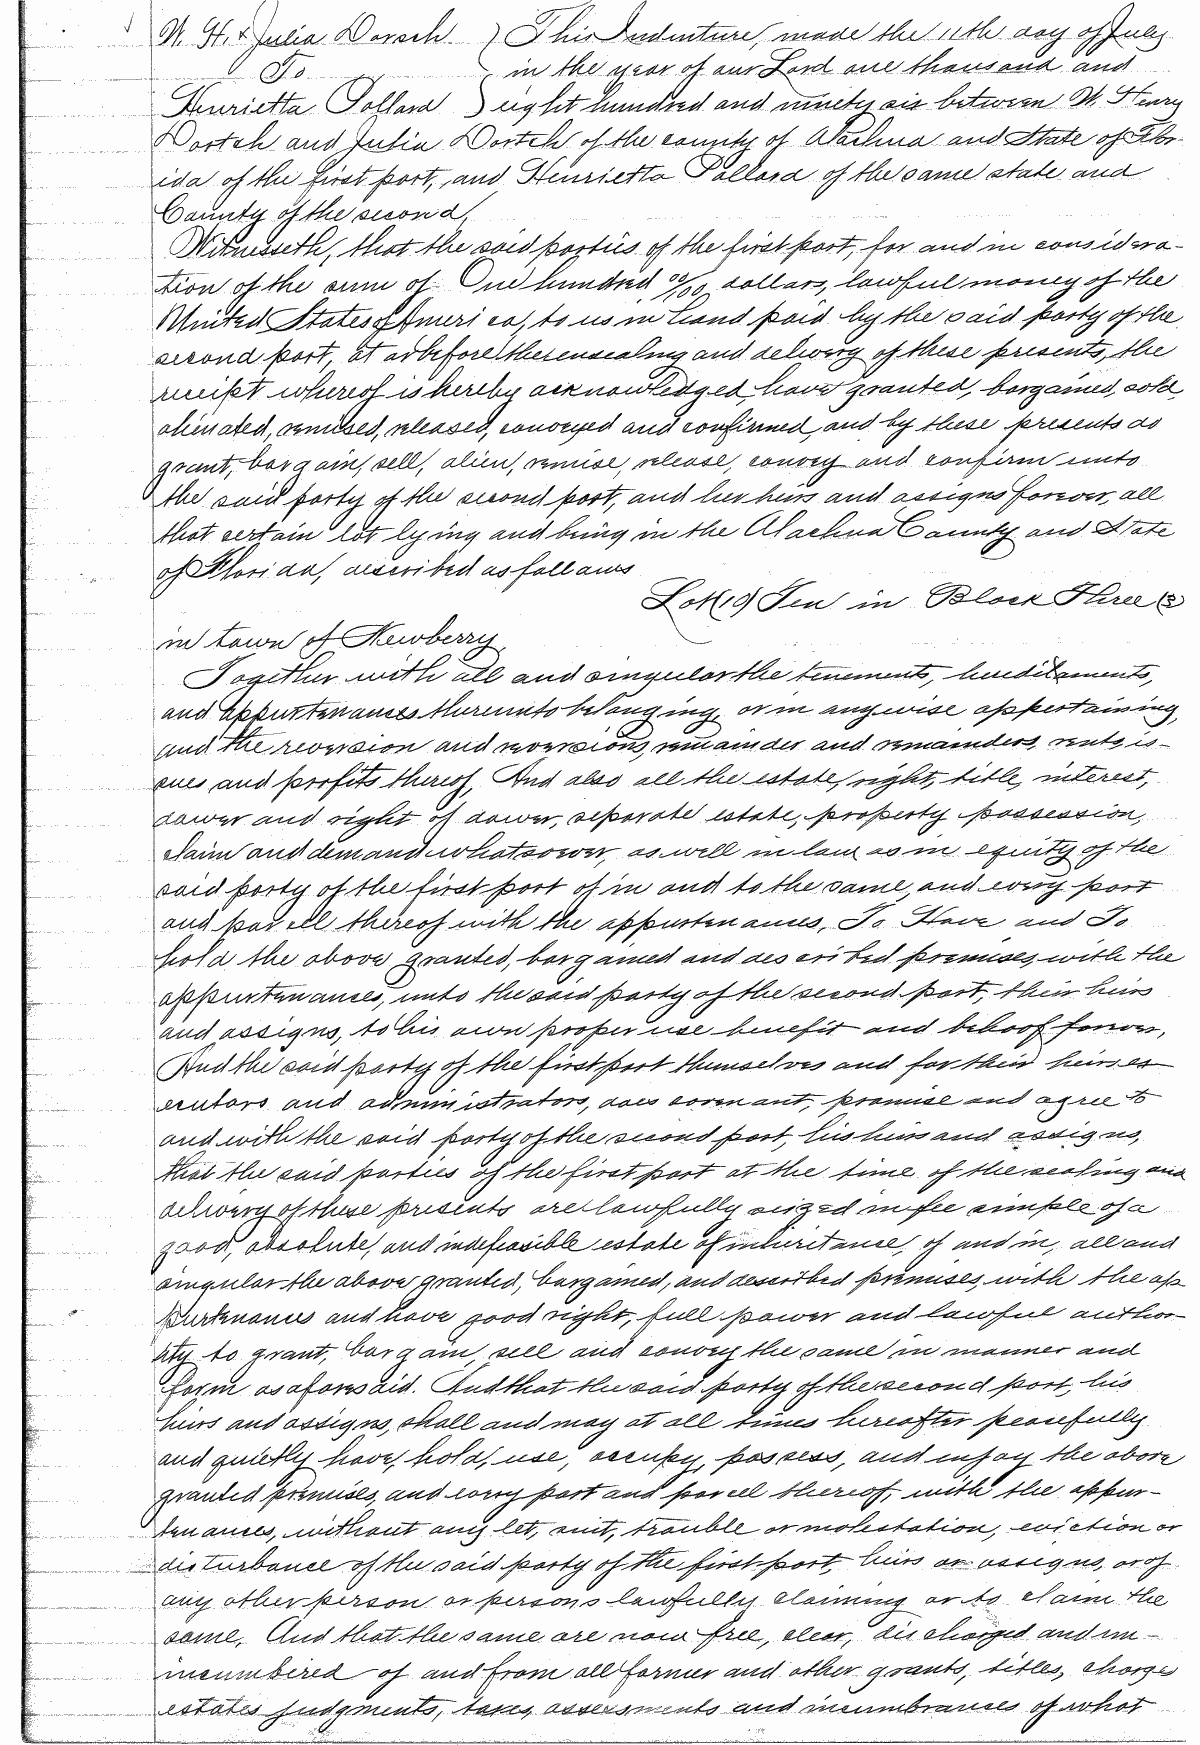 W. H. & Julia Dorsch ) This Indenture, made the 11th day of July
To ( in the year of our Lord one thousand and
Henrietta Pollard ) eight hundred and ninety six between W. Henry
Dortch and Julia Dortch of the county of Alachua and State of Flor-
ida of the first part, and Henrietta Pollard of the same state and
County of the second,
Witnesseth, that the said parties of the first part, for and in considera-
tion of the sum of One hundred 00/100 dollars, lawful money of the
United States of America, to us in hand paid by the said party of the
second part, at or before the ensealing and delivery of these presents, the
receipt whereof is hereby acknowledged have granted, bargained, sold,
alienated, remised, released, conveyed and confirmed, and by these presents do
grant, bargain, sell, alien, remise, release, convey and confirm unto
the said party of the second part, and her heirs and assigns forever, all
that certain lot lying and being in the Alachua County and State
of Florida, described as follows
Lot (10) Ten in Block Three (3)
in town of Newberry
Together with all and singular the tenements, hereditaments,
and appurtenances thereunto belonging, or in anywise appertaining,
and the reversion and reversions, remainder and remainders, rents is-
sues and profits thereof, And also all the estate, right, title, interest,
dower and right of dower, separate estate, property possession,
claim and demand whatsoever, as well in law as in equity of the
said party of the first part of in and to the same, and every part
and parcell thereof with the appurtenances, To Have and To
hold the above granted, bargained and described premises, with the
appurtenances, unto the said party of the second part, their heirs
and assigns, to his own proper use benefit and behoof forever,
And the said party of the first part themselves and for their heirs ex
ecutors and administrators, does covenant, promise and agree to
and with the said party of the second part, his heirs and assigns,
that the said parties of the first part at the time of the sealing and
delivery of these presents are lawfully seized in fee simple of a
good, absolute, and indefeasible estate of inheritance, of and in, all and
singular the above granted, bargained, and described premises, with the ap
purtenances and have good right, full power and lawful author-
ity to grant, bargain, sell and convey the same in manner and
form as aforesaid. And that the said party of the second part, his
heirs and assigns, shall and may at all times hereafter peacefully
and quietly have, hold, use, occupy, possess, and enjoy the above
granted premises, and every part and parcell thereof, with the appur-
tenances, without any let, suit, trouble or molestation, eviction or
disturbance of the said party of the first part, heirs or assigns, or of
any other person or persons lawfully claiming or to claim the
same, And that the same are now free, clear, discharged and un-
incumbered of and from all former and other grants, titles, charges
estates judgments, taxes, assessments and incumbrances of what